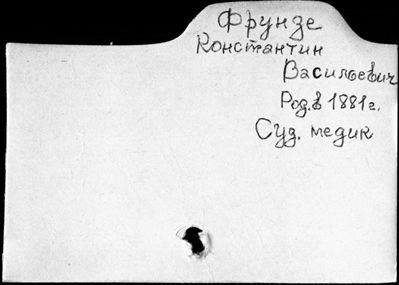 Фрунзе
Константин
Васильевич
Род. в 1881 г.
Суд. медик